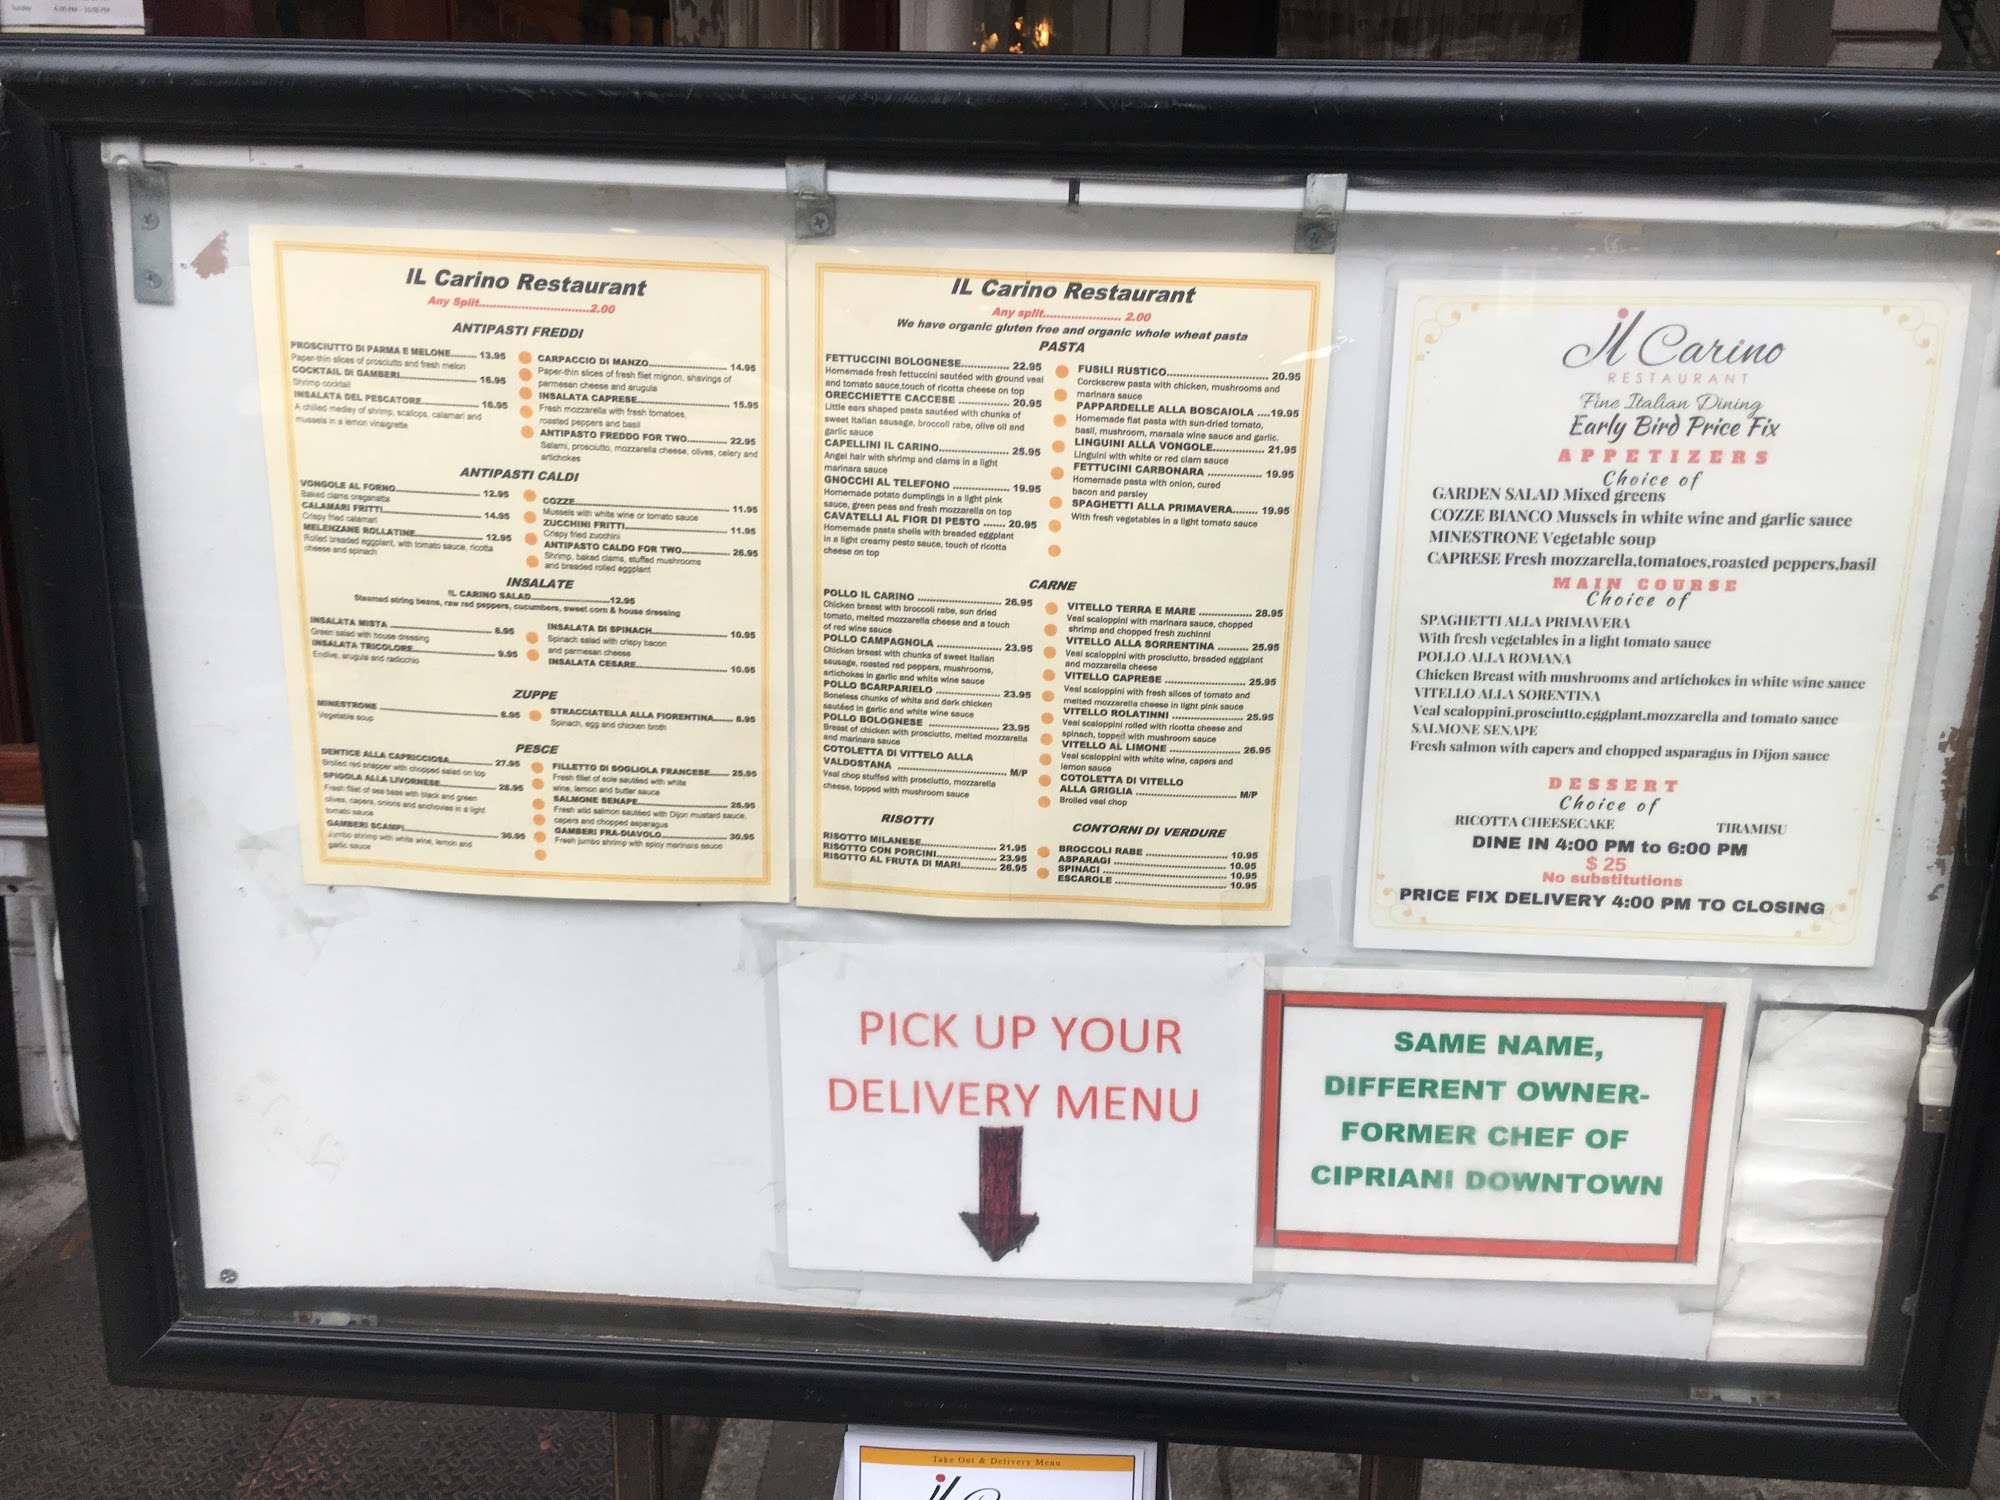 Sunday 4:00 PM - 10:00 PM
IL Carino Restaurant
Any Split..................................2.00
ANTIPASTI FREDDI
PROSCIUTTO DI PARMA E MELONE......... 13.95
Paper-thin slices of prosciutto and fresh melon
COCKTAIL DI GAMBERI........................... 16.95
Shrimp cocktail
INSALATA DEL PESCATORE.................... 16.95
A chilled medley of shrimp, scallops, calamari and
mussels in a lemon vinaigrette
CARPACCIO DI MANZO........................... 14.95
Paper-thin slices of fresh filet mignon, shavings of
parmesan cheese and arugula
INSALATA CAPRESE............................... 15.95
Fresh mozzarella with fresh tomatoes,
roasted peppers and basil
ANTIPASTO FREDDO FOR TWO............. 22.95
Salami, prosciutto, mozzarella cheese, olives, celery and
artichokes
ANTIPASTI CALDI
VONGOLE AL FORNO............................. 12.95
Baked clams oreganatta
CALAMARI FRITTI.................................. 14.95
Crispy fried calamari
MELENZANE ROLLATINE...................... 12.95
Rolled breaded eggplant, with tomato sauce, ricotta
cheese and spinach
COZZE..................................................... 11.95
Mussels with white wine or tomato sauce
ZUCCHINI FRITTI................................... 11.95
Crispy fried zucchini
ANTIPASTO CALDO FOR TWO................ 26.95
Shrimp, baked clams, stuffed mushrooms
and breaded rolled eggplant
INSALATE
IL CARINO SALAD...........................12.95
Steamed string beans, raw red peppers, cucumbers, sweet corn & house dressing
INSALATA MISTA ................................... 8.95
Green salad with house dressing
INSALATA TRICOLORE............................ 9.95
Endive, arugula and radicchio
INSALATA DI SPINACH......................... 10.95
Spinach salad with crispy bacon
and parmesan cheese
INSALATA CESARE............................... 10.95
ZUPPE
MINESTRONE ....................................... 8.95
Vegetable soup
STRACCIATELLA ALLA FIORENTINA...... 8.95
Spinach, egg and chicken broth
PESCE
DENTICE ALLA CAPRICCIOSA............... 27.95
Broiled red snapper with chopped salad on top
SPIGOLA ALLA LIVORNESE.................. 28.95
Fresh filet of sea bass with black and green
olives, capers, onions and anchovies in a light
tomato sauce
GAMBERI SCAMPI................................. 30.95
Jumbo shrimp with white wine, lemon and
garlic sauce
FILLETTO DI SOGLIOLA FRANCESE...... 25.95
Fresh filet of sole sautéed with white
wine, lemon and butter sauce
SALMONE SENAPE................................ 26.95
Fresh wild salmon sautéed with Dijon mustard sauce,
capers and chopped asparagus
GAMBERI FRA-DIAVOLO....................... 30.95
Fresh jumbo shrimp with spicy marinara sauce
IL Carino Restaurant
Any split....................... 2.00
We have organic gluten free and organic whole wheat pasta
PASTA
FETTUCCINI BOLOGNESE.................... 22.95
Homemade fresh fettuccini sautéed with ground veal
and tomato sauce,touch of ricotta cheese on top
ORECCHIETTE CACCESE ..................... 20.95
Little ears shaped pasta sautéed with chunks of
sweet Italian sausage, broccoli rabe, olive oil and
garlic sauce
CAPELLINI IL CARINO.......................... 25.95
Angel hair with shrimp and clams in a light
marinara sauce
GNOCCHI AL TELEFONO ...................... 19.95
Homemade potato dumplings in a light pink
sauce, green peas and fresh mozzarella on top
CAVATELLI AL FIOR DI PESTO ....... 20.95
Homemade pasta shells with breaded eggplant
in a light creamy pesto sauce, touch of ricotta
cheese on top
FUSILI RUSTICO.................................... 20.95
Corckscrew pasta with chicken, mushrooms and
marinara sauce
PAPPARDELLE ALLA BOSCAIOLA ....19.95
Homemade flat pasta with sun-dried tomato,
basil, mushroom, marsala wine sauce and garlic.
LINGUINI ALLA VONGOLE..................... 21.95
Linguini with white or red clam sauce
FETTUCINI CARBONARA ..................... 19.95
Homemade pasta with onion, cured
bacon and parsley
SPAGHETTI ALLA PRIMAVERA............ 19.95
With fresh vegetables in a light tomato sauce
CARNE
POLLO IL CARINO ................................. 26.95
Chicken breast with broccoli rabe, sun dried
tomato, melted mozzarella cheese and a touch
of red wine sauce
POLLO CAMPAGNOLA ......................... 23.95
Chicken breast with chunks of sweet Italian
sausage, roasted red peppers, mushrooms,
artichokes in garlic and white wine sauce
POLLO SCARPARIELO ......................... 23.95
Boneless chunks of white and dark chicken
sautéed in garlic and white wine sauce
POLLO BOLOGNESE ............................ 23.95
Breast of chicken with prosciutto, melted mozzarella
and marinara sauce
COTOLETTA DI VITTELO ALLA
VALDOSTANA .................................... M/P
Veal chop stuffed with prosciutto, mozzarella
cheese, topped with mushroom sauce
VITELLO TERRA E MARE ..................... 28.95
Veal scaloppini with marinara sauce, chopped
shrimp and chopped fresh zuchinni
VITELLO ALLA SORRENTINA ......... 25.95
Veal scaloppini with prosciutto, breaded eggplant
and mozzarella cheese
VITELLO CAPRESE ............................. 25.95
Veal scaloppini with fresh slices of tomato and
melted mozzarella cheese in light pink sauce
VITELLO ROLATINNI ........................... 25.95
Veal scaloppini rolled with ricotta cheese and
spinach, topped with mushroom sauce
VITELLO AL LIMONE ........................... 26.95
Veal scaloppini with white wine, capers and
lemon sauce
COTOLETTA DI VITELLO
ALLA GRIGLIA .................................... M/P
Broiled veal chop
RISOTTI
RISOTTO MILANESE............................ 21.95
RISOTTO CON PORCINI...................... 23.95
RISOTTO AL FRUTA DI MARI............. 26.95
CONTORNI DI VERDURE
BROCCOLI RABE ................................ 10.95
ASPARAGI ......................................... 10.95
SPINACI ............................................. 10.95
ESCAROLE ........................................ 10.95
il Carino
RESTAURANT
Fine Italian Dining
Early Bird Price Fix
APPETIZERS
Choice of
GARDEN SALAD Mixed greens
COZZE BIANCO Mussels in white wine and garlic sauce
MINESTRONE Vegetable soup
CAPRESE Fresh mozzarella,tomatoes,roasted peppers,basil
MAIN COURSE
Choice of
SPAGHETTI ALLA PRIMAVERA
With fresh vegetables in a light tomato sauce
POLLO ALLA ROMANA
Chicken Breast with mushrooms and artichokes in white wine sauce
VITELLO ALLA SORENTINA
Veal scaloppini,prosciutto,eggplant,mozzarella and tomato sauce
SALMONE SENAPE
Fresh salmon with capers and chopped asparagus in Dijon sauce
DESSERT
Choice of
RICOTTA CHEESECAKE TIRAMISU
DINE IN 4:00 PM to 6:00 PM
$ 25
No substitutions
PRICE FIX DELIVERY 4:00 PM TO CLOSING
PICK UP YOUR
DELIVERY MENU
SAME NAME,
DIFFERENT OWNER-
FORMER CHEF OF
CIPRIANI DOWNTOWN
Take Out & Delivery Menu